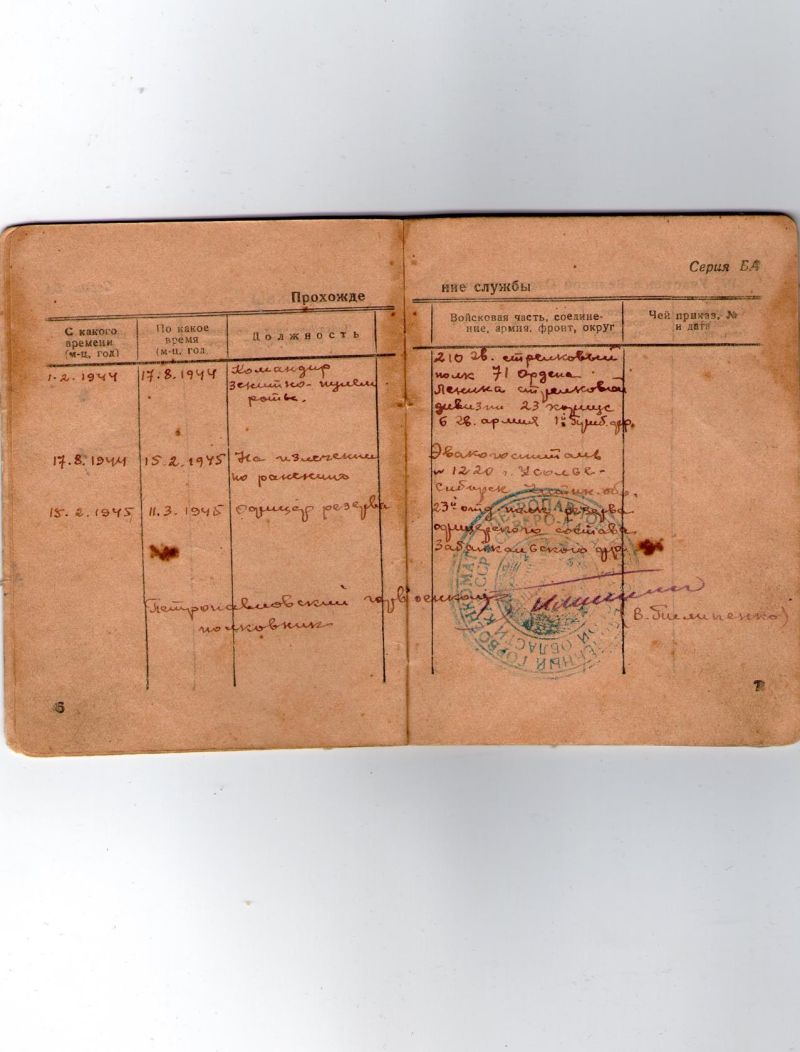 Серия БА
Прохожде
ние службы
С какого времени (м-ц, год)
По какое время (м-ц, год
Должность
Войсковая часть, соедине-
ние, армия, фронт, округ
Чей приказ, №
и дата
1.2.1944
17.8.1944
Командир
зенитно-пулем
роты.
210 гв. стрелковый
полк 71 Ордена
Ленина стрелковой
дивизии 23 корпус
6 гв. армия 1й Приб. фр.
17.8.1944
15.2.1945
На излечении
по ранению
Эвакогоспиталь
№ 1220 г. Усолье-
Сибирск
обл.
15.2.1945
11.3.1945
Офицер резерва
23й отд. полк резерва
офицерского состава
Забайкальского фр.
Петропавловский горвоенком
полковник
(В. Пилипенко)
6
7